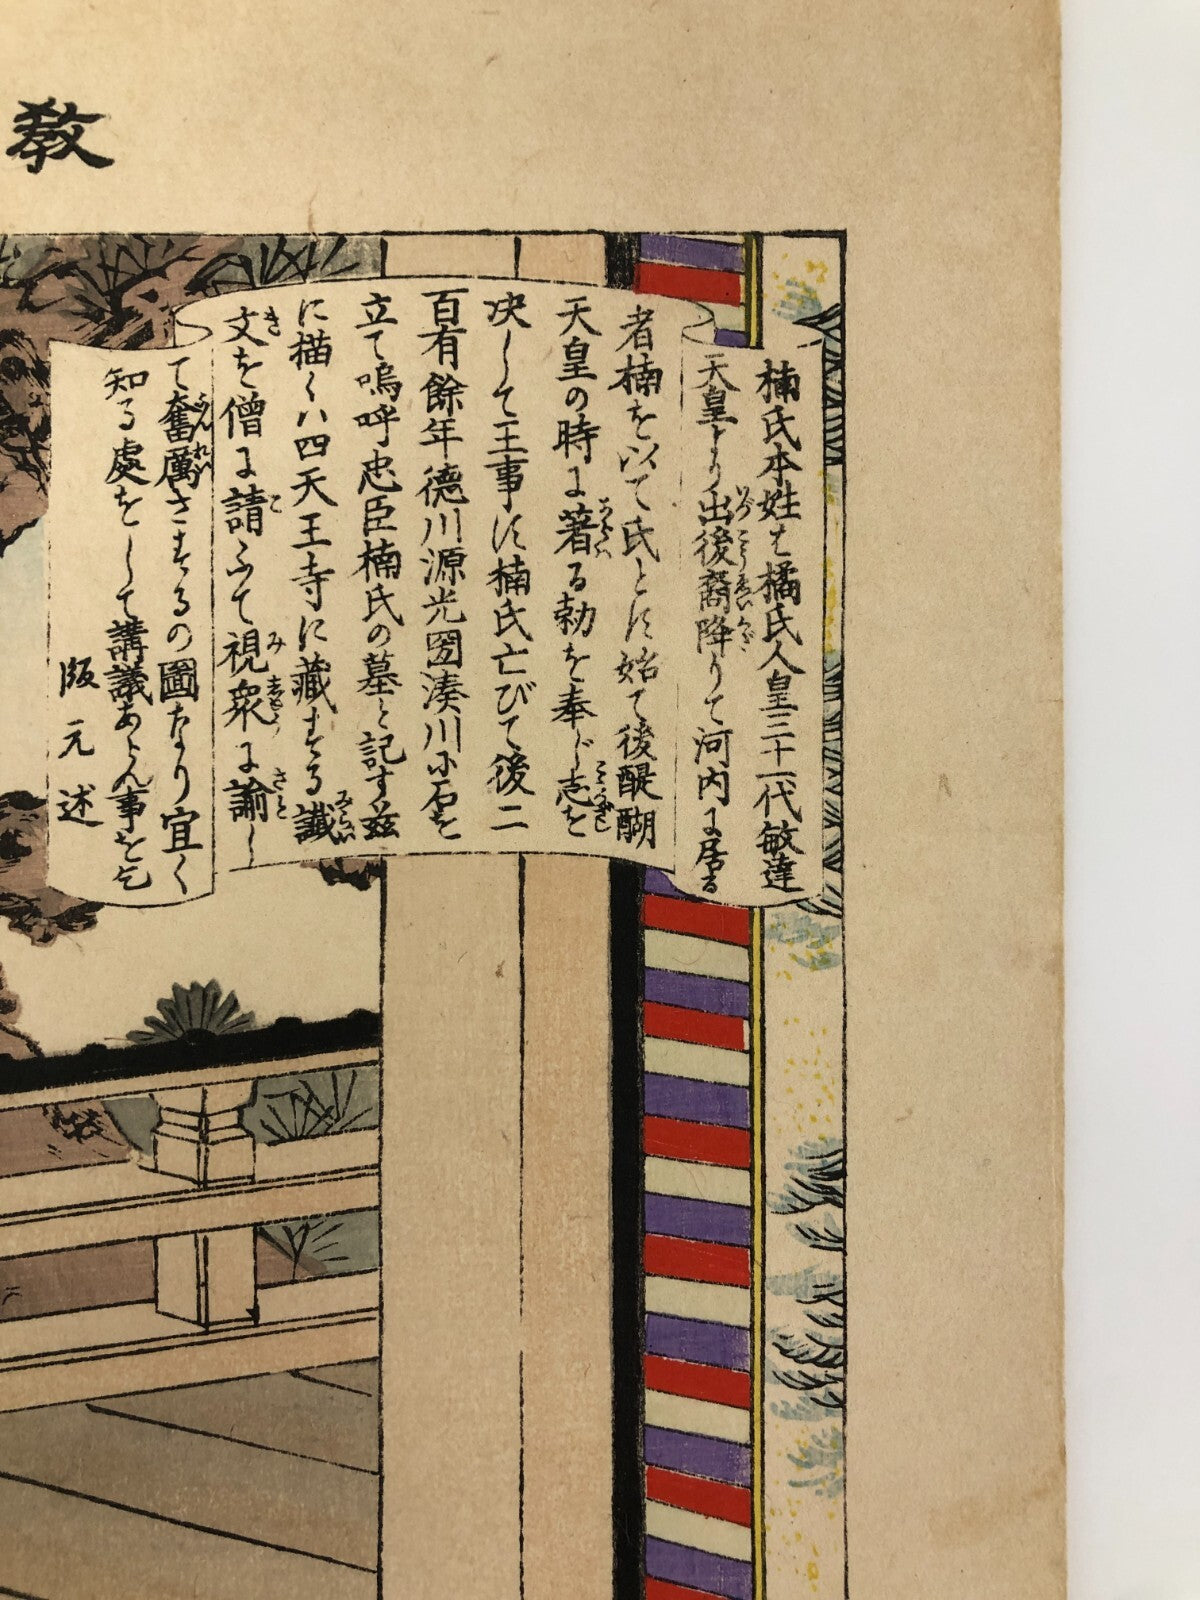 教
楠氏本姓は橘氏人皇三十一代敏達
天皇より出後裔降りて河内に居る
者楠を以て氏とす始て後醍醐
天皇の時に著る勅を奉じ志を
决して王事す楠氏亡びて後二
百有餘年徳川源光圀湊川に石を
立て嗚呼忠臣楠氏の墓と記す茲
に描くハ四天王寺に藏する讖
文を僧に請ふて視衆に諭し
て奮厲さするの圖なり宜く
知る處をして講議あらん事を乞
版元述